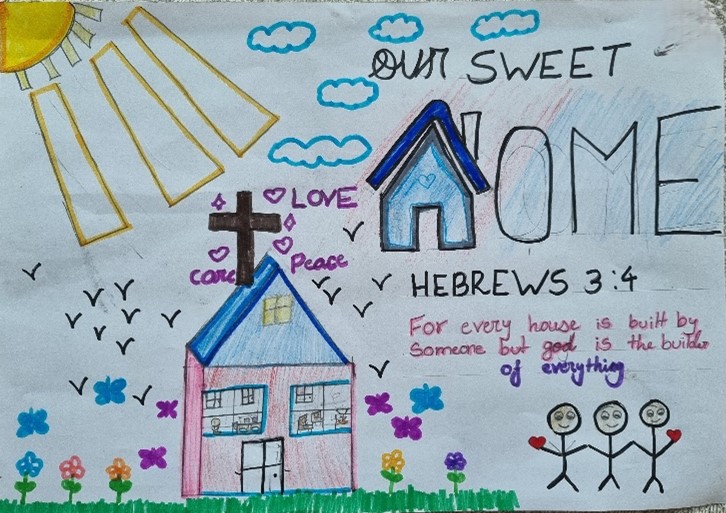 OUR SWEET
HOME
LOVE
care
Peace
HEBREWS 3:4
For every house is built by
Someone but god is the builder
of everything